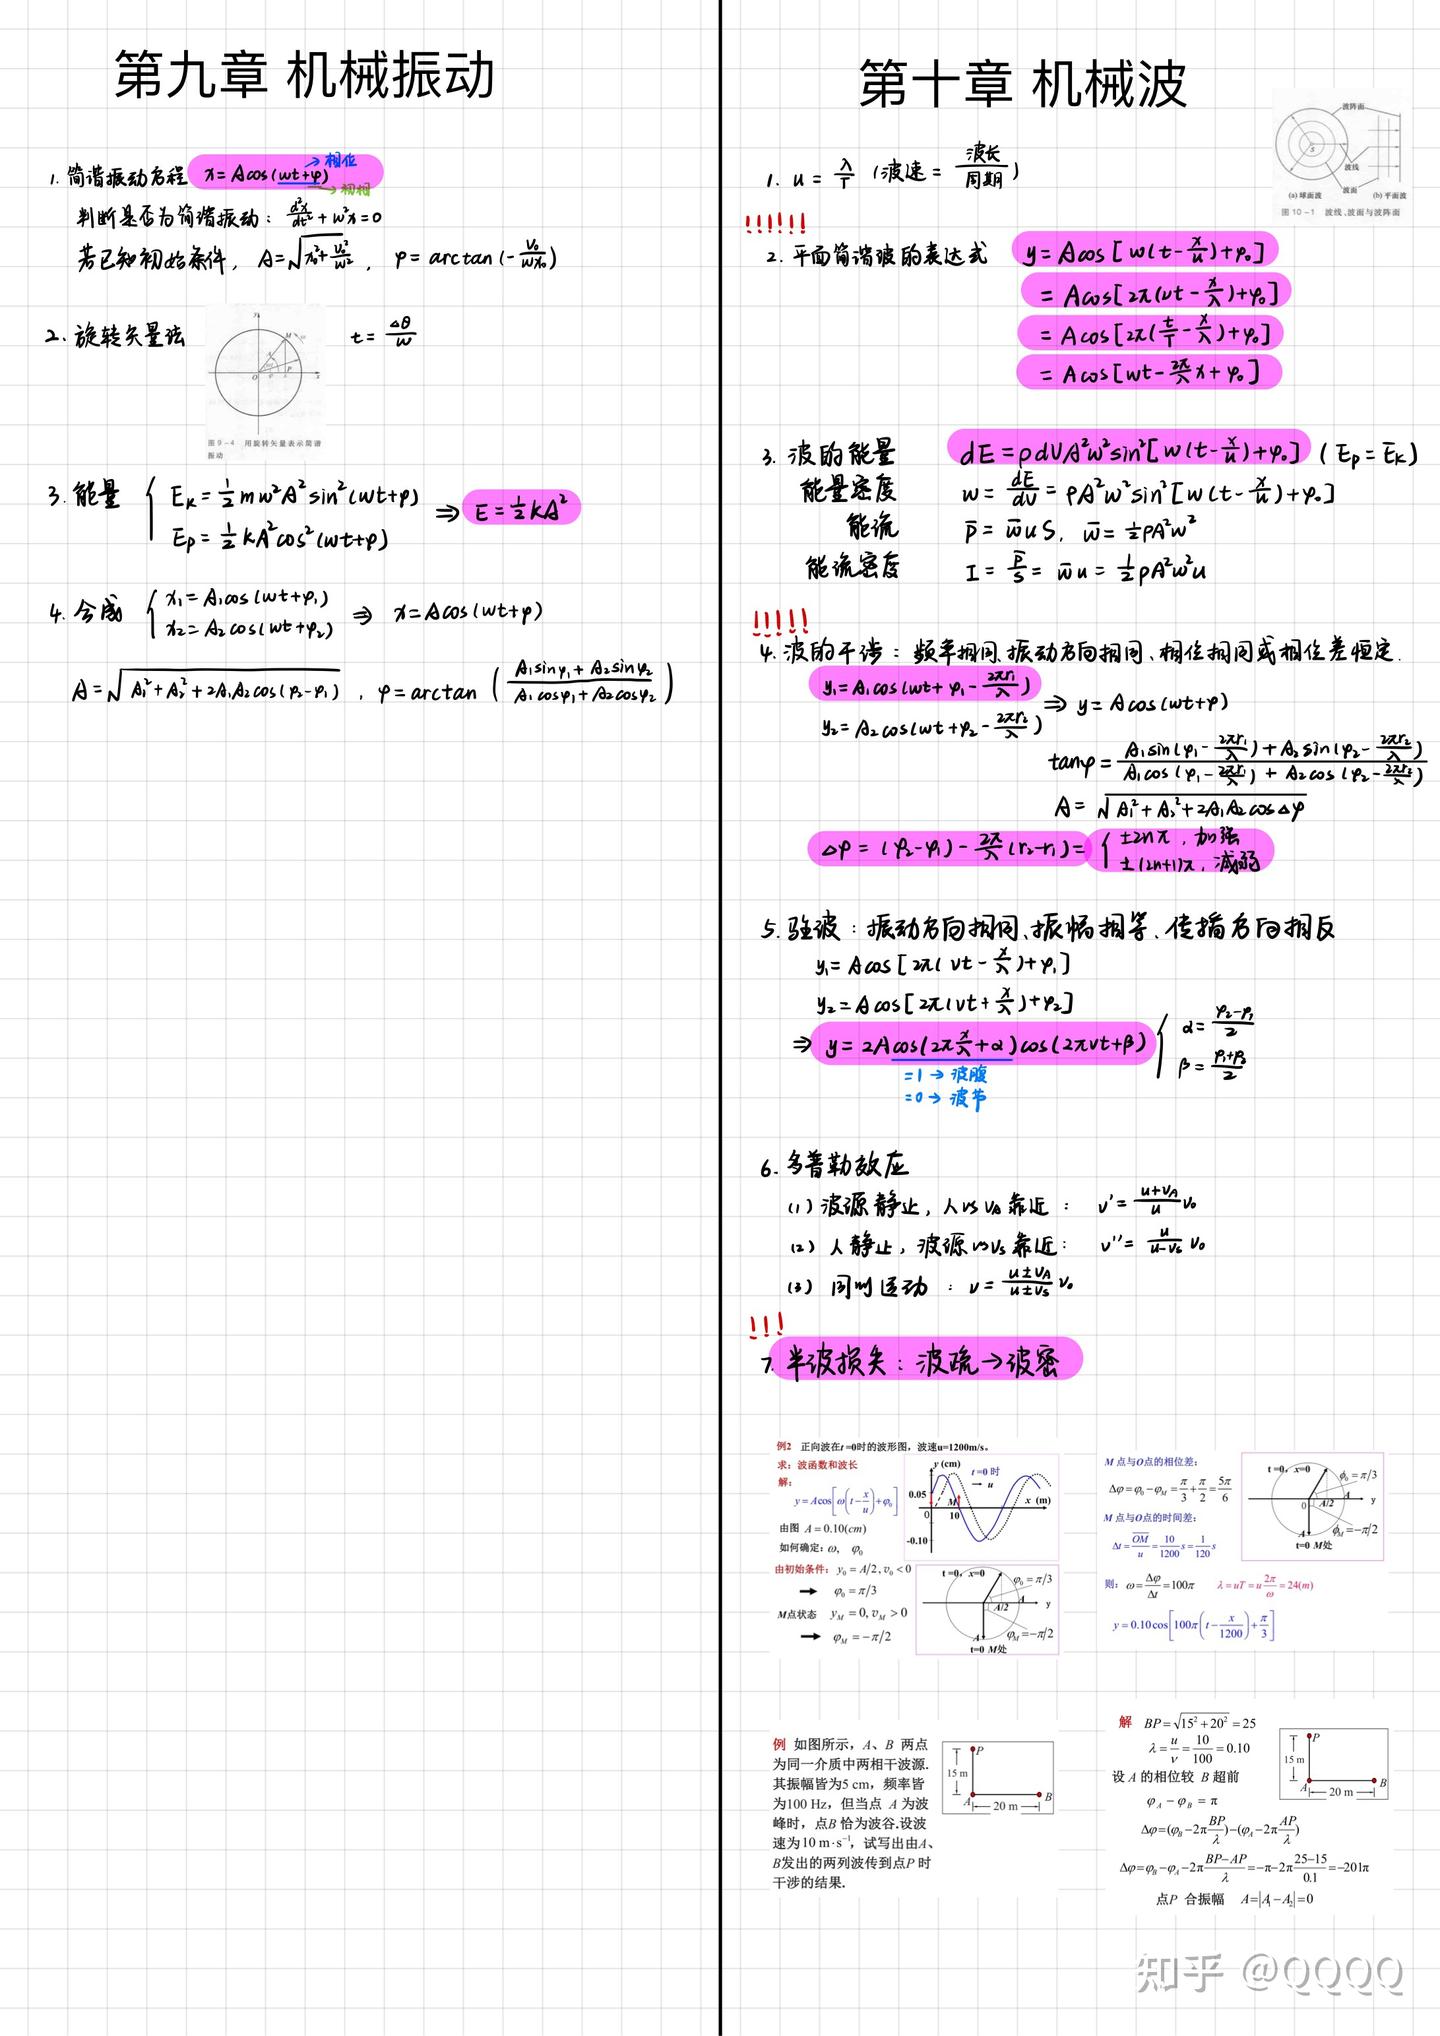 第九章 机械振动
1. 简谐振动方程 x=Acos(wt+φ)
→相位
→初相
判断是否为简谐振动: d²x/dt²+w²x=0
若已知初始条件, A=√(x₀²+v₀²/w²), φ=arctan(-v₀/wx₀)
2. 旋转矢量法 t=Δθ/w
图9-4 用旋转矢量表示简谐
振动
3. 能量 { Eₖ=½mw²A²sin²(wt+φ)
Eₚ=½kA²cos²(wt+φ)
⇒ E=½kA²
4. 合成 { x₁=A₁cos(wt+φ₁)
x₂=A₂cos(wt+φ₂)
⇒ x=Acos(wt+φ)
A=√(A₁²+A₂²+2A₁A₂cos(φ₂-φ₁)), φ=arctan((A₁sinφ₁+A₂sinφ₂)/(A₁cosφ₁+A₂cosφ₂))
第十章 机械波
波阵面
S
波线
波面
(a) 球面波 (b) 平面波
图10-1 波线、波面与波阵面
1. u=λ/T (波速=波长/周期)
!!!!!!
2. 平面简谐波的表达式 y=Acos[w(t-x/u)+φ₀]
=Acos[2π(νt-x/λ)+φ₀]
=Acos[2π(t/T-x/λ)+φ₀]
=Acos[wt-2π/λ x+φ₀]
3. 波的能量 dE=ρdVA²w²sin²[w(t-x/u)+φ₀] (Eₚ=Eₖ)
能量密度 w=dE/dV=ρA²w²sin²[w(t-x/u)+φ₀]
能流 p̄=w̄uS, w̄=½ρA²w²
能流密度 I=p̄/S=w̄u=½ρA²w²u
!!!!!
4. 波的干涉: 频率相同、振动方向相同、相位相同或相位差恒定.
y₁=A₁cos(wt+φ₁-2πr₁/λ)
y₂=A₂cos(wt+φ₂-2πr₂/λ)
⇒ y=Acos(wt+φ)
tanφ=(A₁sin(φ₁-2πr₁/λ)+A₂sin(φ₂-2πr₂/λ))/(A₁cos(φ₁-2πr₁/λ)+A₂cos(φ₂-2πr₂/λ))
A=√(A₁²+A₂²+2A₁A₂cosΔφ)
Δφ=(φ₂-φ₁)-2π/λ(r₂-r₁)={ ±2nπ, 加强
±(2n+1)π, 减弱
5. 驻波: 振动方向相同、振幅相等、传播方向相反
y₁=Acos[2π(νt-x/λ)+φ₁]
y₂=Acos[2π(νt+x/λ)+φ₂]
⇒ y=2Acos(2πx/λ+α)cos(2πνt+β) { α=(φ₂-φ₁)/2
β=(φ₁+φ₂)/2
=1→波腹
=0→波节
6. 多普勒效应
(1) 波源静止, 人以v_A靠近: ν'=(u+v_A)/u ν₀
(2) 人静止, 波源以v_S靠近: ν''=u/(u-v_S) ν₀
(3) 同时运动: ν=(u±v_A)/(u±v_S) ν₀
!!!
7. 半波损失: 波疏→波密
例2 正向波在t=0时的波形图，波速u=1200m/s。
求：波函数和波长
解：
y=Acos[ω(t-x/u)+φ₀]
由图 A=0.10(cm)
如何确定：ω, φ₀
由初始条件： y₀=A/2, v₀<0
➞ φ₀=π/3
M点状态 y_M=0, v_M>0
➞ φ_M=-π/2
y (cm)
t=0 时
→ u
0.05
M
x (m)
0 10
-0.10
t=0, x=0
φ₀=π/3
A
A/2
y
A
φ_M=-π/2
t=0 M处
M 点与O点的相位差:
Δφ=φ₀-φ_M=π/3+π/2=5π/6
M 点与O点的时间差:
Δt=OM/u=10/1200 s=1/120 s
则: ω=Δφ/Δt=100π λ=uT=u 2π/ω=24(m)
y=0.10cos[100π(t-x/1200)+π/3]
t=0, x=0
φ₀=π/3
A
0 A/2
y
A
φ_M=-π/2
t=0 M处
例 如图所示，A、B 两点
为同一介质中两相干波源.
其振幅皆为5 cm，频率皆
为100 Hz，但当点 A 为波
峰时，点B 恰为波谷.设波
速为10 m·s⁻¹，试写出由A、
B发出的两列波传到点P 时
干涉的结果.
P
15 m
A
B
20 m
解 BP=√(15²+20²)=25
λ=u/ν=10/100=0.10
设 A 的相位较 B 超前
φ_A-φ_B=π
Δφ=(φ_B-2πBP/λ)-(φ_A-2πAP/λ)
Δφ=φ_B-φ_A-2π(BP-AP)/λ=-π-2π(25-15)/0.1=-201π
点P 合振幅 A=|A₁-A₂|=0
P
15 m
A
B
20 m
知乎 @QQQQ